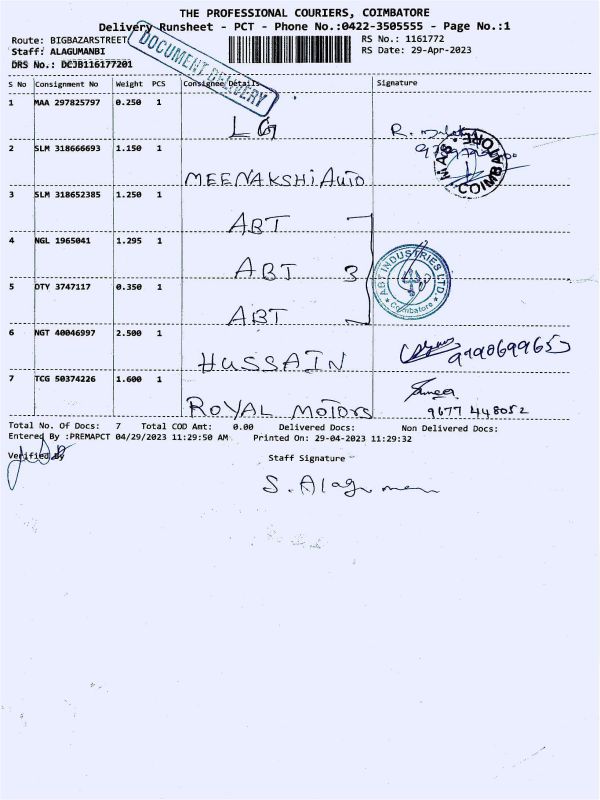 THE PROFESSIONAL COURIERS, COIMBATORE
Delivery Runsheet - PCT - Phone No.:0422-3505555 - Page No.:1
Route: BIGBAZARSTREET RS No.: 1161772
Staff: ALAGUMANBI RS Date: 29-Apr-2023
DRS No.: DCJB116177201
DOCUMENT DELIVERY
S No Consignment No Weight PCS Consignee Details Signature
1 MAA 297825797 0.250 1
LG R.
2 SLM 318666693 1.150 1
MEENAKSHI AUTO
COIMBATORE
3 SLM 318652385 1.250 1
ABT
4 NGL 1965041 1.295 1
ABT 3
ABT INDUSTRIES LTD
Coimbatore
5 OTY 3747117 0.350 1
ABT
6 NGT 40046997 2.500 1
HUSSAIN
7 TCG 50374226 1.600 1
ROYAL MOTORS 9677 448052
Total No. Of Docs: 7 Total COD Amt: 0.00 Delivered Docs: Non Delivered Docs:
Entered By :PREMAPCT 04/29/2023 11:29:50 AM Printed On: 29-04-2023 11:29:32
Verified By Staff Signature